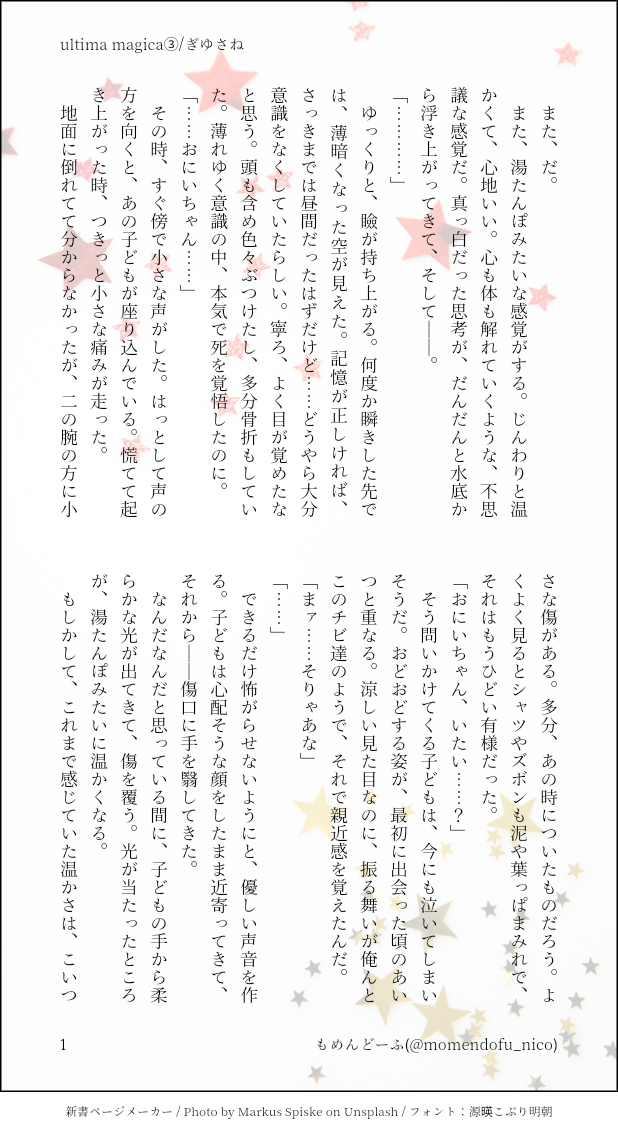 ultima magica③/ぎゆさね
　また、だ。
　また、湯たんぽみたいな感覚がする。じんわりと温
かくて、心地いい。心も体も解れていくような、不思
議な感覚だ。真っ白だった思考が、だんだんと水底か
ら浮き上がってきて、そして――。
「…………」
　ゆっくりと、瞼が持ち上がる。何度か瞬きした先で
は、薄暗くなった空が見えた。記憶が正しければ、
さっきまでは昼間だったはずだけど……どうやら大分
意識をなくしていたらしい。寧ろ、よく目が覚めたな
と思う。頭も含め色々ぶつけたし、多分骨折もしてい
た。薄れゆく意識の中、本気で死を覚悟したのに。
「……おにいちゃん……」
　その時、すぐ傍で小さな声がした。はっとして声の
方を向くと、あの子どもが座り込んでいる。慌てて起
き上がった時、つきっと小さな痛みが走った。
　地面に倒れてて分からなかったが、二の腕の方に小
さな傷がある。多分、あの時についたものだろう。よ
くよく見るとシャツやズボンも泥や葉っぱまみれで、
それはもうひどい有様だった。
「おにいちゃん、いたい……？」
　そう問いかけてくる子どもは、今にも泣いてしまい
そうだ。おどおどする姿が、最初に出会った頃のあい
つと重なる。涼しい見た目なのに、振る舞いが俺んと
このチビ達のようで、それで親近感を覚えたんだ。
「まァ……そりゃあな」
「……」
　できるだけ怖がらせないようにと、優しい声音を作
る。子どもは心配そうな顔をしたまま近寄ってきて、
それから――傷口に手を翳してきた。
　なんだなんだと思っている間に、子どもの手から柔
らかな光が出てきて、傷を覆う。光が当たったところ
が、湯たんぽみたいに温かくなる。
　もしかして、これまで感じていた温かさは、こいつ
1
もめんどーふ(@momendofu_nico)
新書ページメーカー / Photo by Markus Spiske on Unsplash / フォント：源暎こぶり明朝